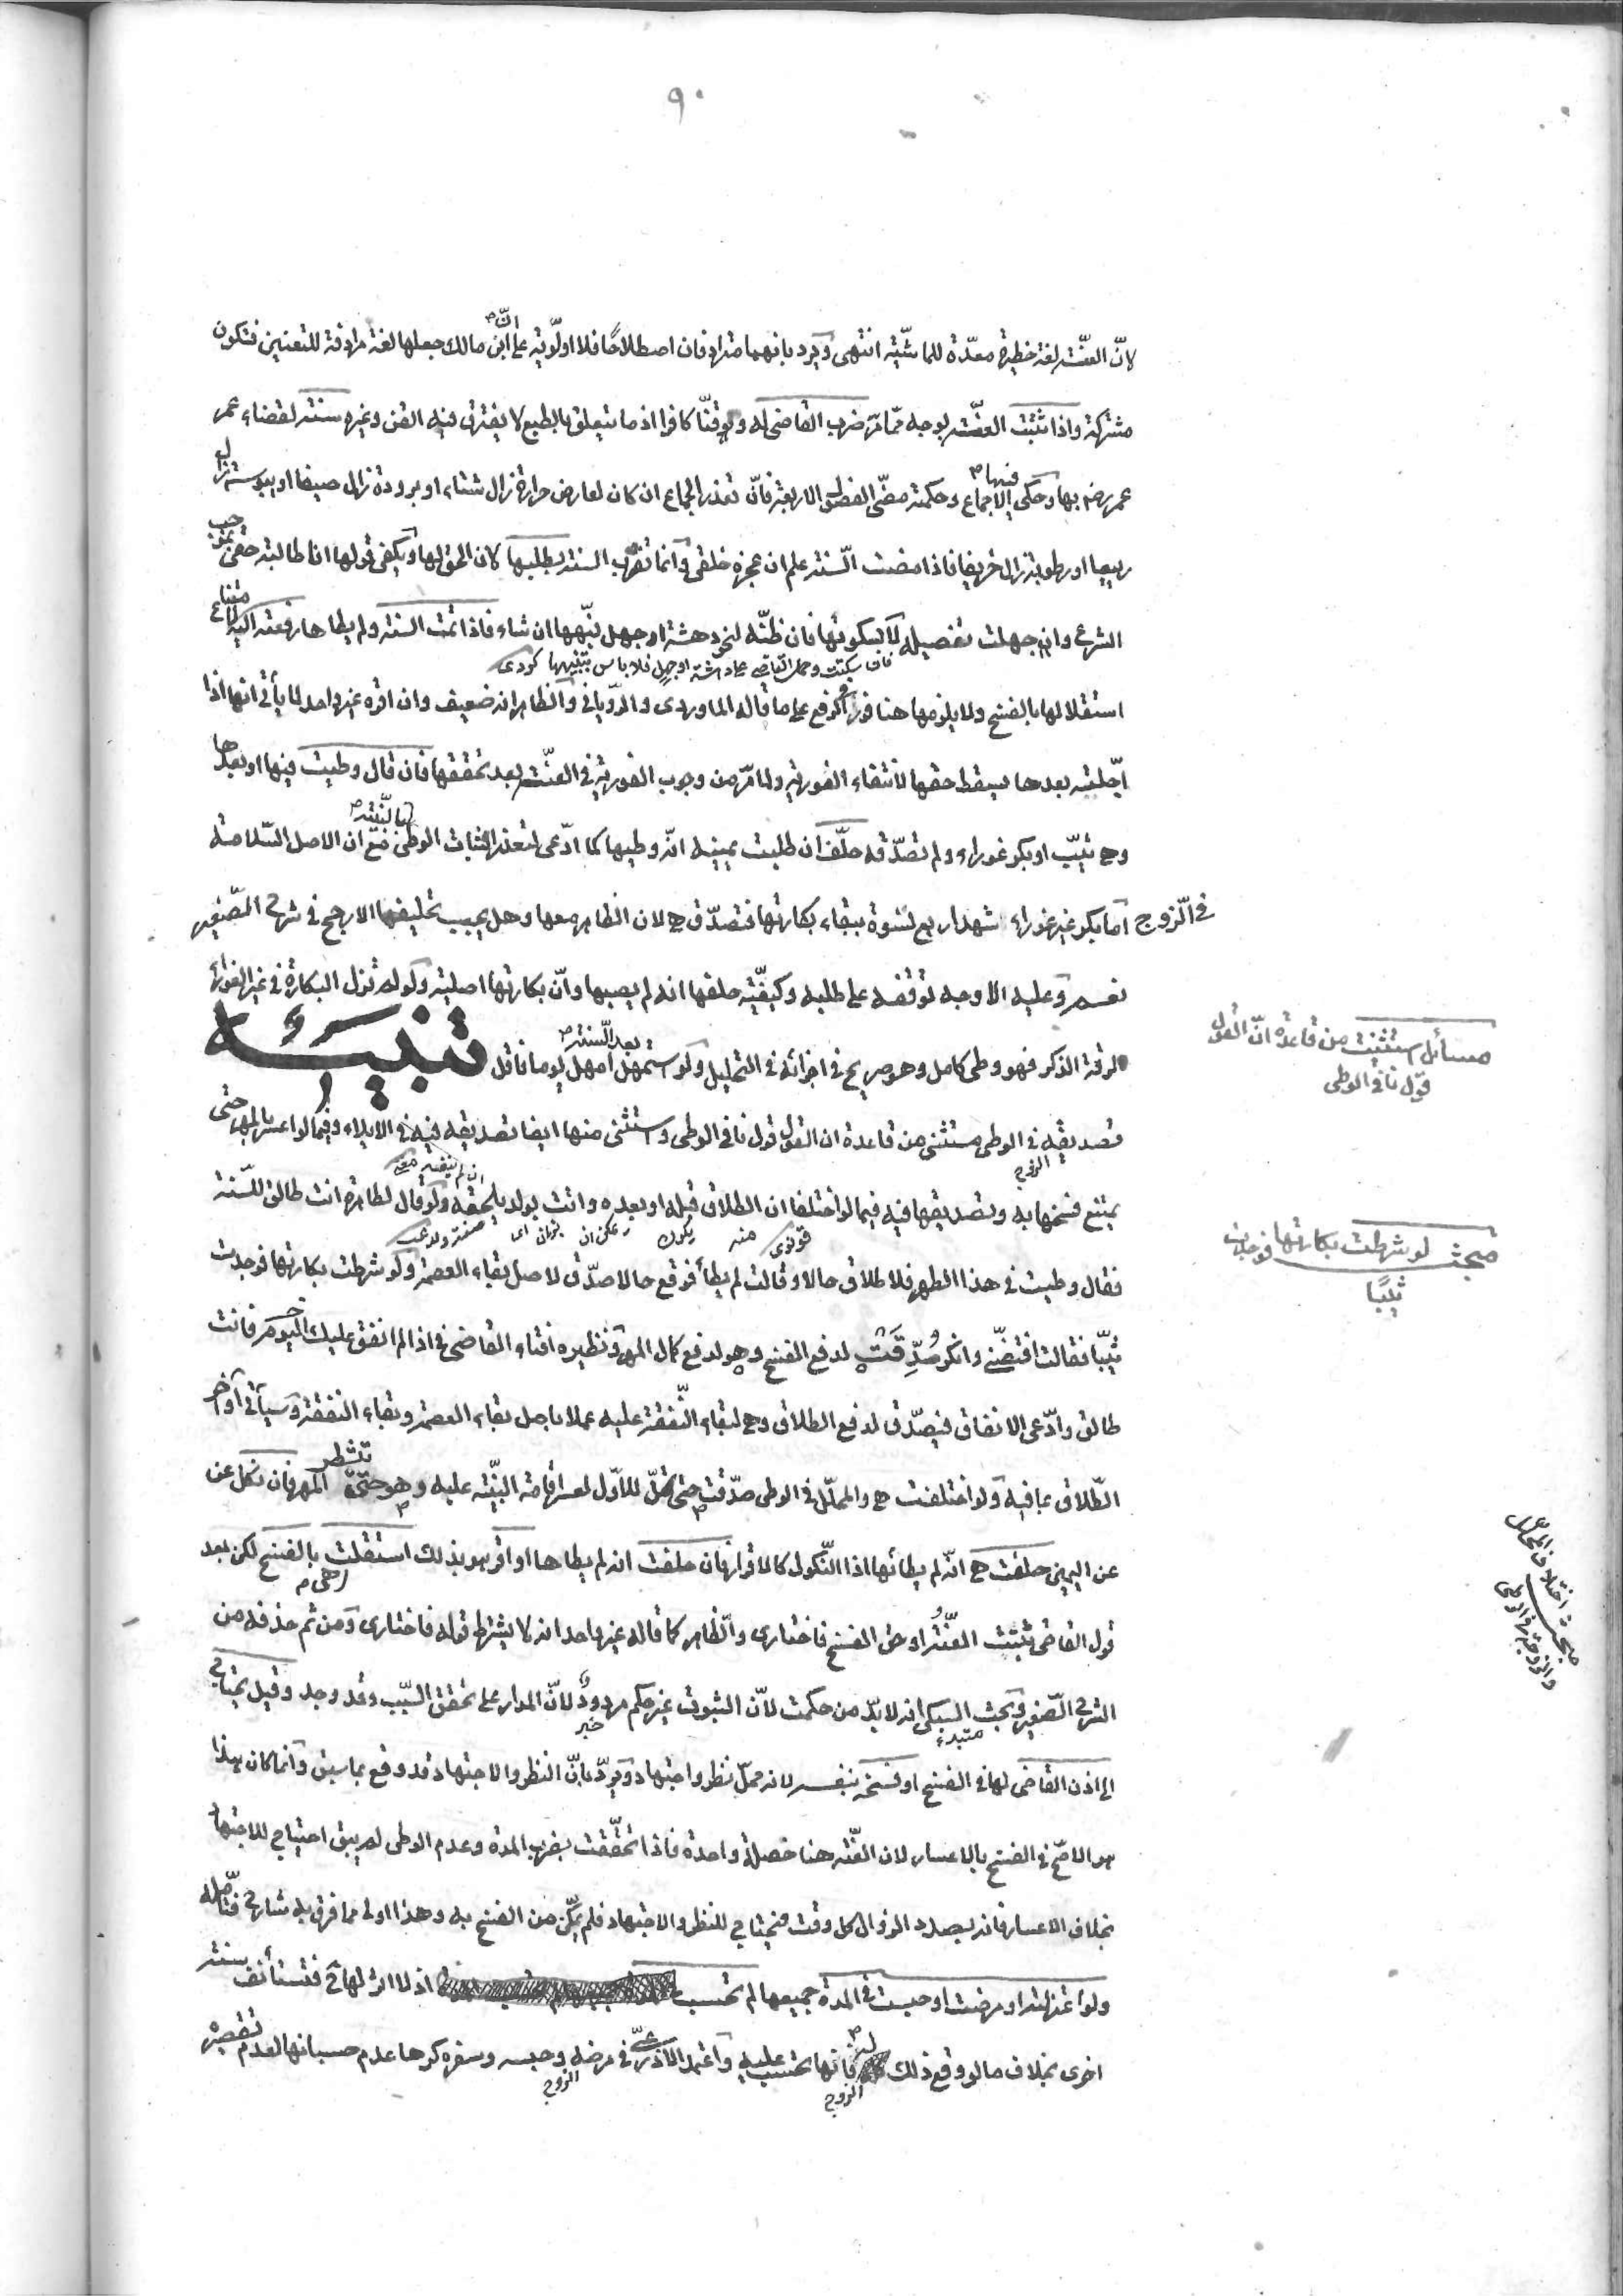 ٩٠
لانّ العنّة لغة حظيرة معدّة للماشية انتهى ويرد بانهما مترادفان اصطلاحًا فلا اولويّة على انّ ابن مالك جعلها لغة مرادفة للتعنين فتكون
مشتركة واذا ثبتت العنّة بوجه ممّا مرّ ضرب القاضي له ولو قنّا كافرا اذ ما يتعلق بالطبع لا يفترق فيه القن وغيره سنة لقضاء عمر
عمر رضي بها وحكي فيها الاجماع وحكمته مضيّ الفصول الاربعة فانّ تعذر الجماع ان كان لعارض حرارة زال شتاء او برودة زال صيفا او يبوسة زال
ربيعا او رطوبة زال خريفا فاذا مضت السّنة علم ان عجزه خلقي وانما تضرب السنة بطلبها لان الحق لها ويكفي قولها انا طالبة حقي بموجب
الشرع وان جهلت تفصيله لا بسكوتها فان ظنّه لنحو دهشة او جهل نبّهها ان شاء فاذا تمت السنة ولم يطاها رفعته اليه لامتناع
فان سكتت وحمل القاضي على دهشة او جهل فلا باس بتنبيهها كردى
استقلالها بالفسخ ولا يلزمها هنا فور في الرفع على ما قاله الماوردي والرّوياني والظاهر انه ضعيف وان اقره غير واحد لما يأتي انها اذا
اجّلته بعدها سقط حقها لانتفاء الفورية ولما مرّ من وجوب الفورية في العنّة بعد تحققها فان قال وطيت فيها او بعدها
وهي ثيّب او بكر غوراء ولم تصدّقه حلّف ان طلبت يمينه انّه وطيها كما ادّعى لتعذر اثبات الوطئ بالبيّنة مع ان الاصل السّلامة
في الزوج امّا بكر غير غوراء شهد اربع نسوة ببقاء بكارتها فتصدّق هي لان الظاهر معها وهل يجب تحليفها الارجح في شرح الصّغير
نعم وعليه الاوجه توقفه على طلبه وكيفيّة حلفها انه لم يصبها وانّ بكارتها اصلية ولو لم تزل البكارة في غير الغوراء
لرقة الذكر فهو وطئ كامل وهو صريح في اجزائه في التحليل ولو استمهل بعد السّنة امهل يوما فاقل تنبيه
تصديقه في الوطى مستثنى من قاعدة ان القول قول نافي الوطى واستثنى منها ايضا تصديقه فيه في الايلاء وفيما لو اعسر بالمهر حتى
الزوج
يمتنع فسخها به وتصديقها فيه فيما لو اختلفا ان الطلاق قبله او بعده واتت بولد يلحقه ان لم ينفيه ولو قال لطاهرة انت طالق للسّنة
فقال وطيت في هذا الطهر فلا طلاق حالا وقالت لم يطأ فوقع حالا صدّق لاصل بقاء العصمة ولو شرطت بكارتها فوجدت
ثيّبا فقالت افتضّني وانكر صُدِّقَت لدفع الفسخ وهو لدفع كمال المهر ونظيره افتاء القاضي في اذا لم انفق عليك اليوم فانت
طالق وادّعى الانفاق فيصدّق لدفع الطلاق وهي لبقاء النّفقة عليه عملا باصل بقاء العصمة وبقاء النفقة وسيأتي آخر
الطّلاق بما فيه ولو اختلفت هي والمحلّل في الوطى صدّقت حتى تحلّ للاوّل لعسر اقامة البيّنة عليه وهو حتى يتشطر المهر فان نكل عن
عن اليمين حلفت هي انّه لم يطأها اذا النّكول كالاقرار فان حلفت انه لم يطاها او اقر هو بذلك استقلت بالفسخ لكن بعد
قول القاضي ثبتت العنّة او حق الفسخ فاختارى والظاهر كما قاله غير واحد انه لا يشترط قوله فاختارى ومن ثم حذفه من
الشرح الصّغير وبحث السبكي انه لا بدّ من حكمت لانّ الثبوت غير حكم مردود لانّ المدار على تحقق السّبب وقد وجد وقيل يحتاج
مبتدء خبر
الى اذن القاضي لها في الفسخ او فسخه بنفسه لانه محلّ نظر واجتهاد ويردّ بانّ النظر والاجتهاد قد وقع بما سبق وانما كان هذا
هو الاصح في الفسخ بالاعسار لان العنّة هنا خصلة واحدة فاذا تحققت بضرب المدة وعدم الوطى لم يبق احتياج للاجتهاد
بخلاف الاعسار فانه بصدد الزوال كل وقت فيحتاج للنظر والاجتهاد فلم يمكّن من الفسخ به وهذا اولى مما فرق به شارح فتأمّله
ولو اعتزلته او مرضت او حبست في المدة جميعها لم تحسب اذ لا اثر لها فتستأنف سنة
اخرى بخلاف ما لو وقع ذلك له فانها تحسب عليه واعتمد الاذرعي في مرضه وحبسه وسفره كرها عدم حسبانها لعدم تقصيره
الزوج الزوج
مسائل استثنيت من قاعدة انّ القول
قول نافي الوطى
مبحث لو شرطت بكارتها فوجدت
ثيّبًا
مبحث اختلاف المحلل
والزوجة في الوطى